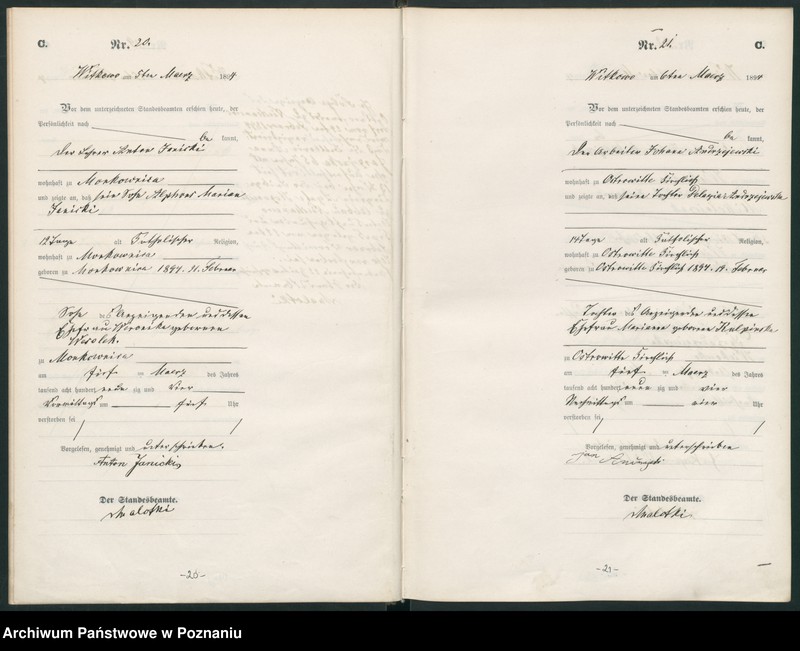 C. Nr. 20.
Witkowo am 5ten Maerz 1894
Vor dem unterzeichneten Standesbeamten erschien heute, der
Persönlichkeit nach
be kannt,
Der Lehrer Anton Janicki
wohnhaft zu Morkownica
und zeigte an, daß sein Sohn Alphons Marian
Janicki
12 Tage alt Katholischer Religion,
wohnhaft zu Morkownica
geboren zu Morkownica 1894.
Sohn des Anzeigenden und dessen
Ehefrau Veronika geborenen
zu Morkownica
am fünf ten Maerz des Jahres
tausend acht hundert neun zig und vier
Vormittags um fünf Uhr
verstorben sei
Vorgelesen, genehmigt und unterschrieben.
Anton Janicki
Der Standesbeamte.
Malotki
-20-
Nr. 21. C.
Witkowo am 6ten Maerz 1894
Vor dem unterzeichneten Standesbeamten erschien heute, der
Persönlichkeit nach
be kannt,
Der Arbeiter Johann Andrzejewski
wohnhaft zu Ostrowitte Kirchlich
und zeigte an, daß seine Tochter Pelagia Andrzejewska
14 Tage alt Katholischer Religion,
wohnhaft zu Ostrowitte Kirchlich
geboren zu Ostrowitte Kirchlich 1894.
Tochter des Anzeigenden und dessen
Ehefrau Marianna geborene
zu Ostrowitte Kirchlich
am fünf ten Maerz des Jahres
tausend acht hundert neun zig und vier
Nachmittags um vier Uhr
verstorben sei
Vorgelesen, genehmigt und unterschrieben
Jan
Der Standesbeamte.
Malotki
-21-
Archiwum Państwowe w Poznaniu